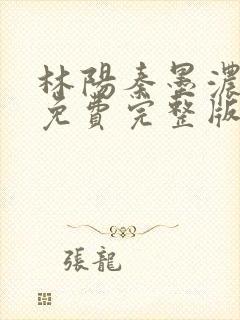 林陽秦墨濃
免費完整版
張龍